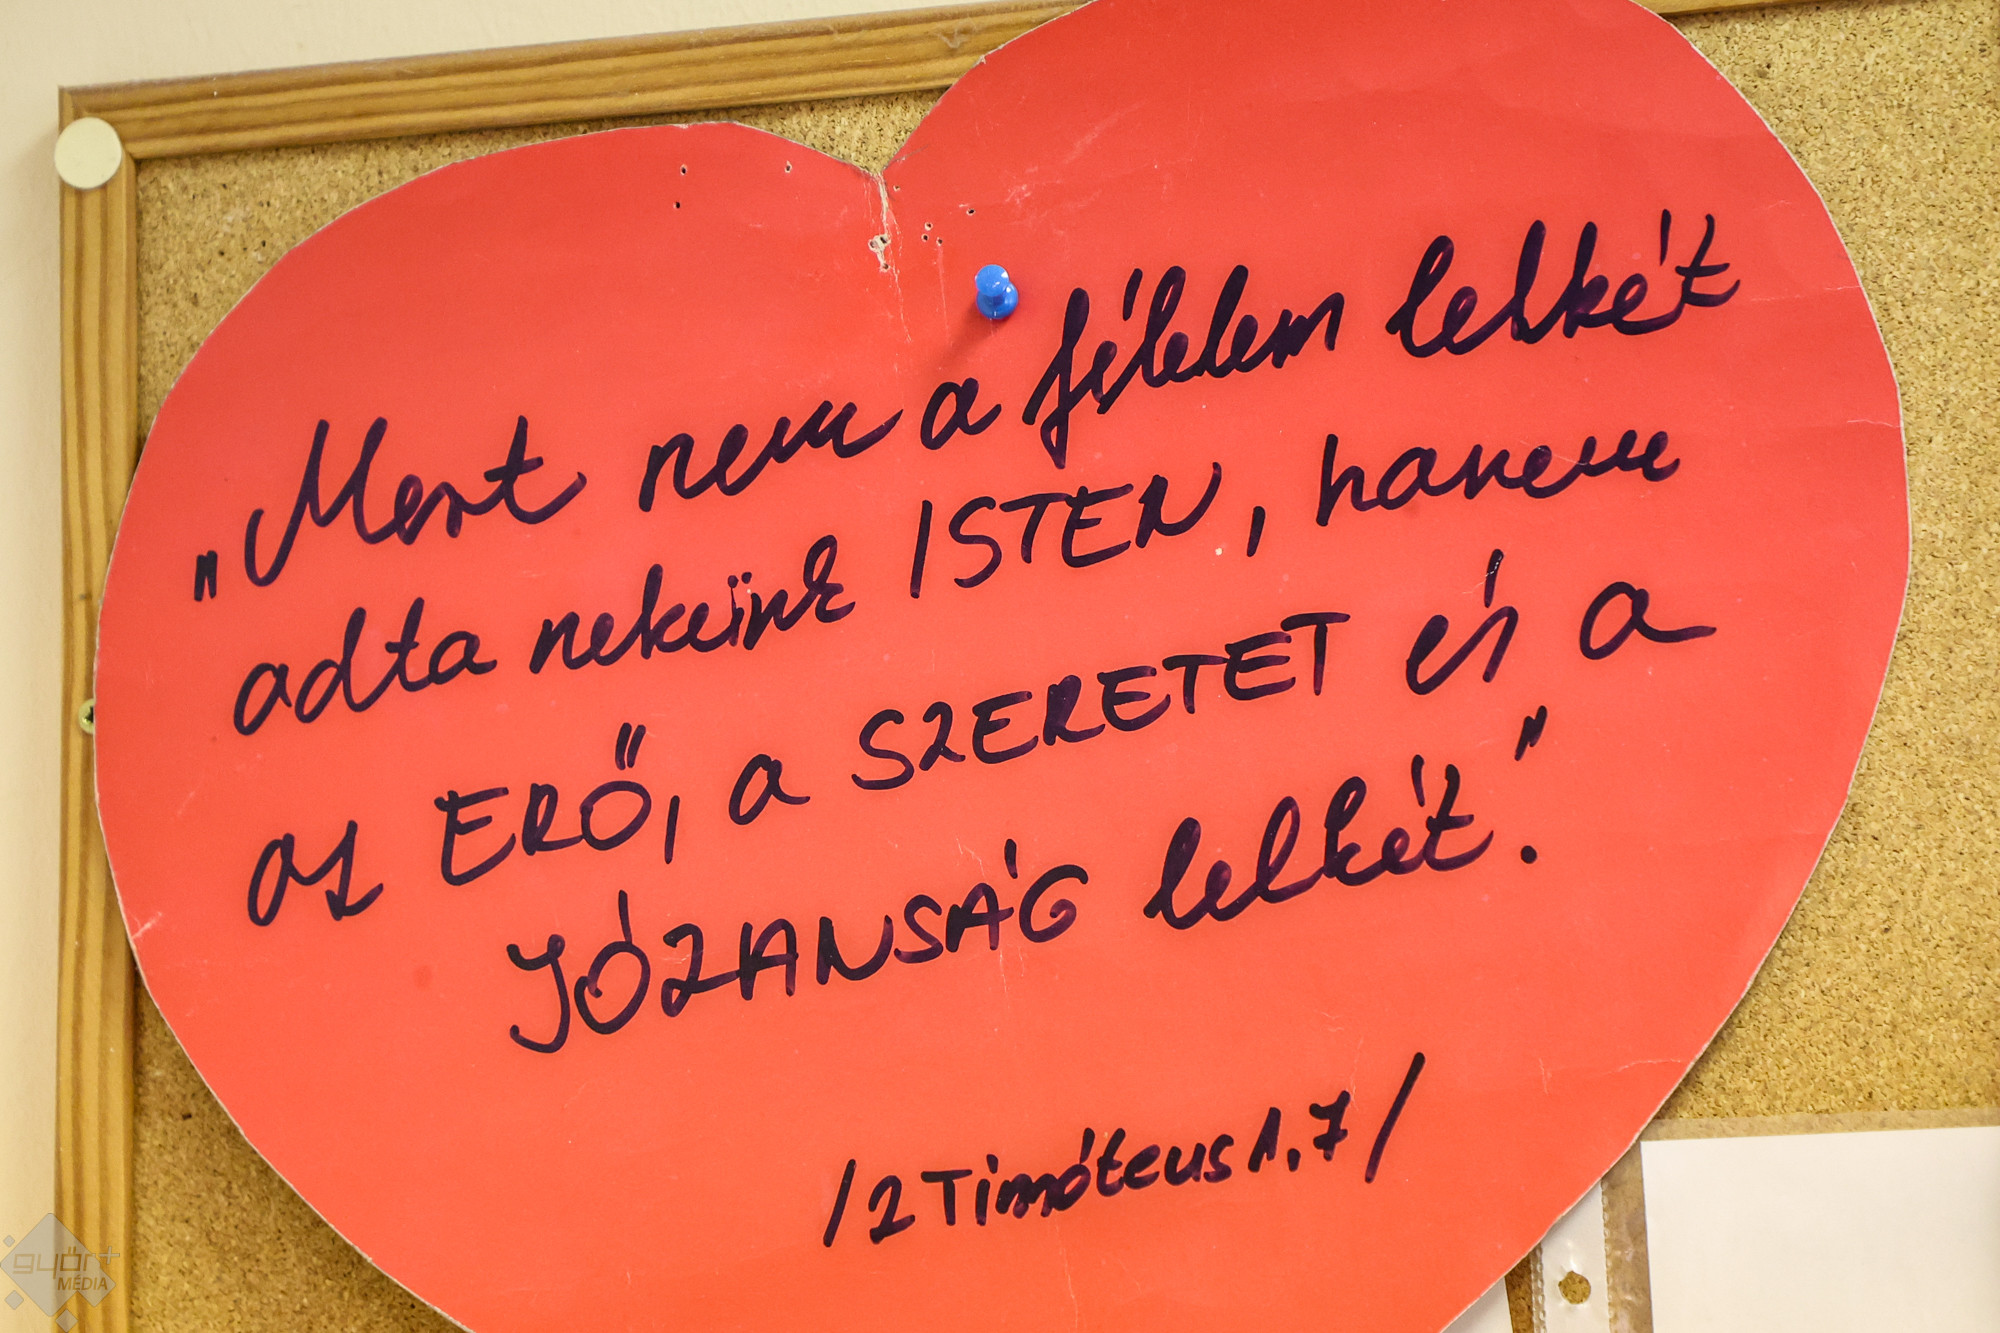 „Mert nem a félelem lelkét
adta nekünk ISTEN, hanem
az ERŐ, a SZERETET és a
JÓZANSÁG lelkét."
/2 Timóteus 1,7/
győr+
MÉDIA